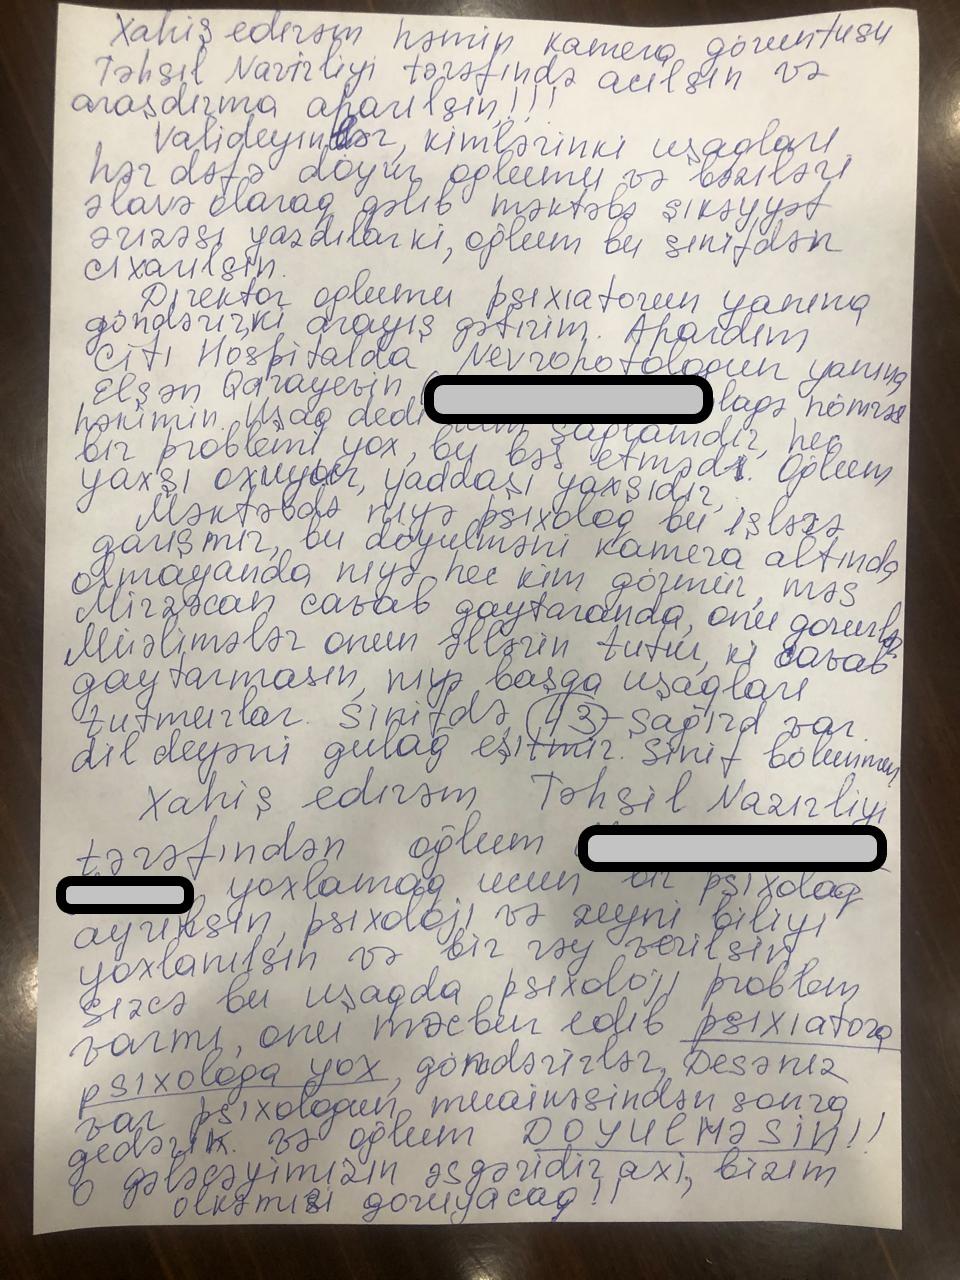 Xahiş edirəm həmin kamera görüntüsü
Təhsil Nazirliyi tərəfində acılsın və
araşdırma aparılsın!!!
Valideyinlər, kimlərinki uşaqları
hər dəfə döyür oğlumu və bəziləri
əlavə olaraq gəlib məktəbə şikəyyət
ərizəsi yazdılar ki, oğlum bu sinifdən
cıxarılsın.
Direktor oğlumu psixiatorun yanına
göndərir ki arayış gətirim. Apardım
Citi Hospitalda Nevropotologun yanına
Elşən Qarayevin
həkimin. Uşaq dedi lagə nömrəs
bir problemi yox, bu bəs etmədi. Oğlum
yaxşı oxuyur, yaddaşı yaxşıdır,
Məktəbdə niyə psixolog bu işlərə
garışmir, bu döyülməni kamera altında
olmayanda niyə hec kim görmür, məs
Mirzəcan cavab gaytaranda, onu görürlər
Müəlimələr onun əllərin tutur, ki cavab
gaytarmasın, niyə başga uşagları
tutmurlar. Sinifdə 43 şagird var.
dil deyəni gulag eşitmir. Sinif bölünmür
Xahiş edirəm Təhsil Nazirliyi
tərəfindən oğlum
yoxlamag ucun bir psixolog
ayrılsın, psixoloji və zeyni biliyi
yoxlanılsın və bir rəy verilsin
sizcə bu uşagda psixoloji problem
varmı, onu məcbur edib psixiatora
psixologa yox, göndərirlər, Desəniz
var psixologun muainəsindən sonra
gedərik. və oğlum DOYULMƏSİN!!
O gələcəyimizin əsgəridir axi, bizim
ölkəmizi goruyacag!!